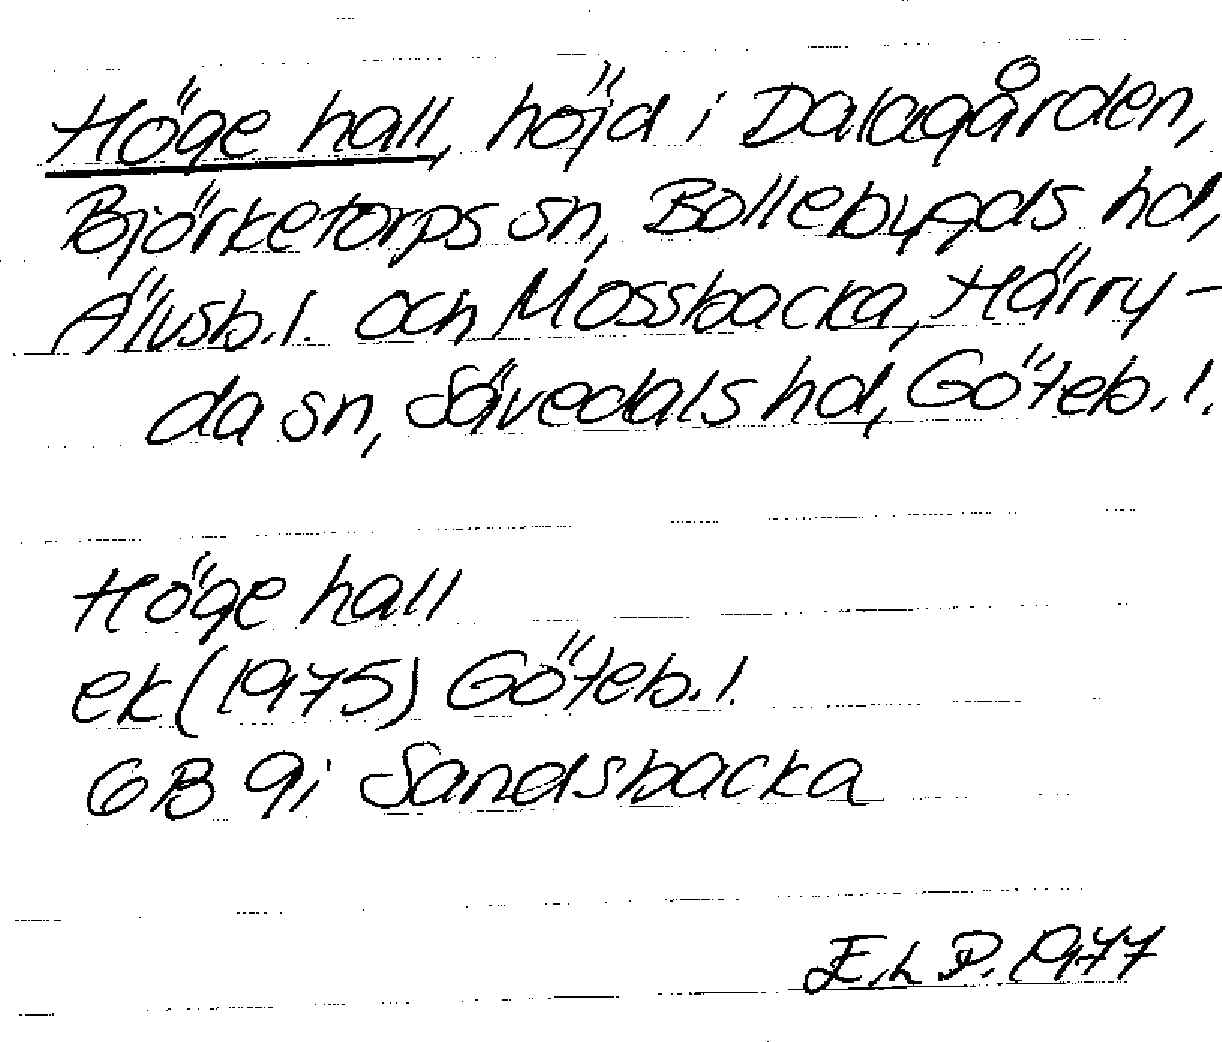 Höge hall, höjd i Dalagården,
Björketorps sn, Bollebygds hd,
Älvsb.l. och Mossbacka, Härry-
da sn, Sävedals hd, Göteb.l.
Höge hall
ek (1975) Göteb.l.
6B 9i Sandsbacka
E.L.P. 1977